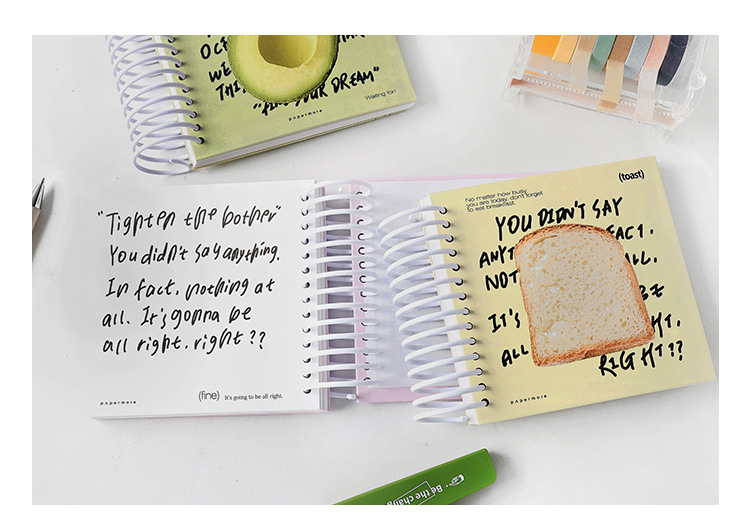 OC
WE
THI
"FIND YOUR DREAM"
Waiting for!
papermore
"Tighten the bother"
You didn't say anything.
In fact, nothing at
all. It's gonna be
all right, right ??
papermore
(fine) It's going to be all right.
(toast)
No matter how busy
you are today, don't forget
to eat breakfast.
YOU DIDN'T SAY
ANYT FACT.
NOT ALL.
IT'S BE
ALL HT.
RIGHT??
papermore
Be the chang